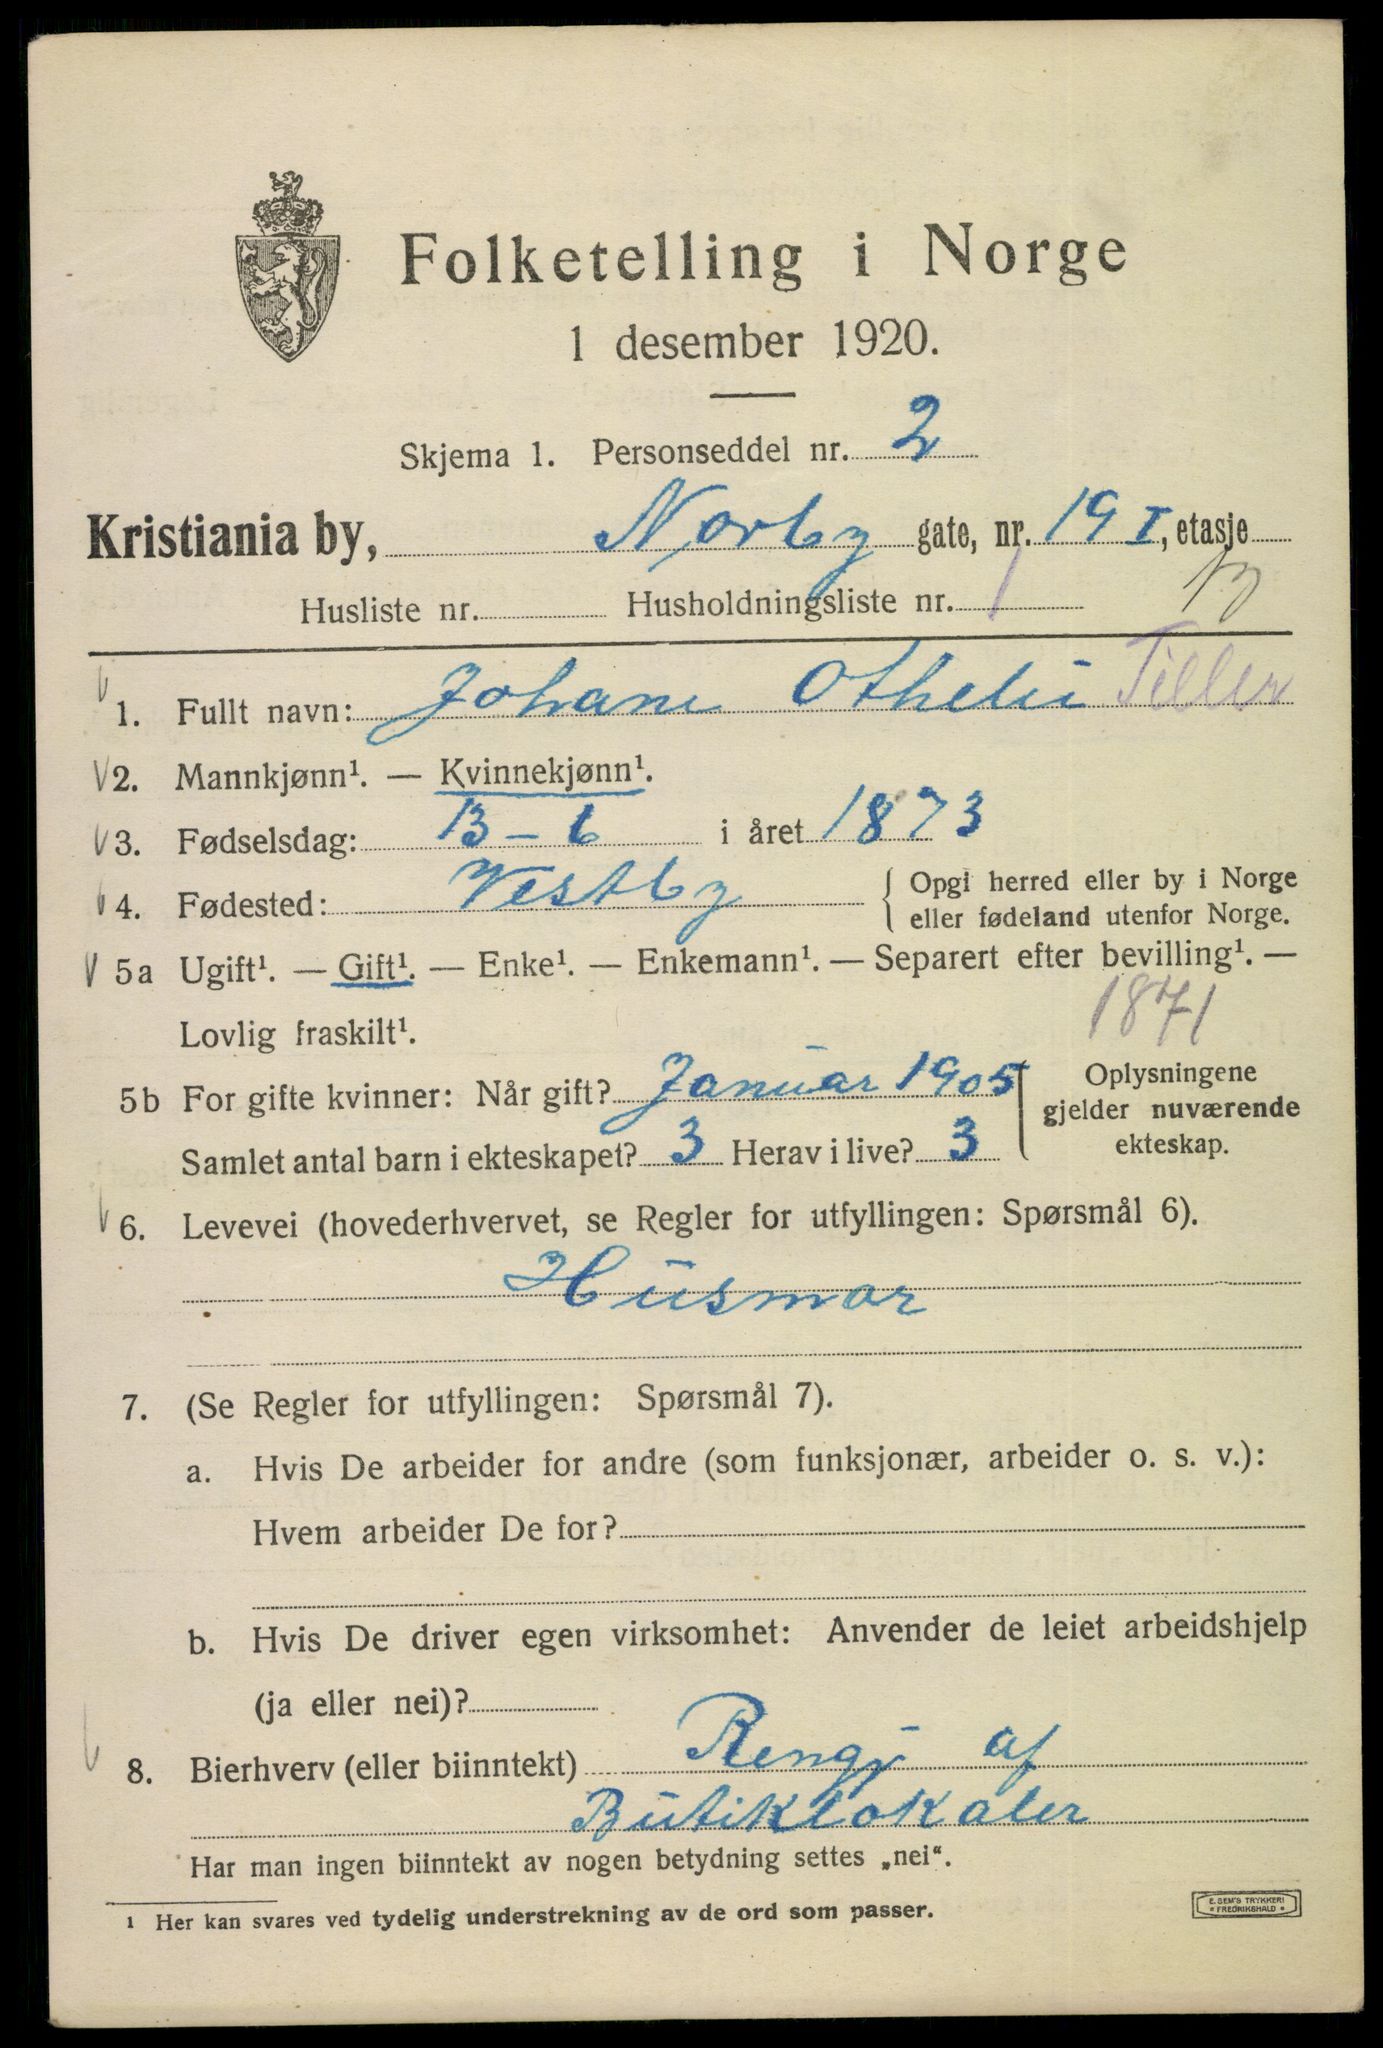 Folketelling i Norge
1 desember 1920.
Skjema 1. Personseddel nr. 2
Kristiania by, Norby gate, nr. 19 I, etasje
Husliste nr. Husholdningsliste nr. 1
1. Fullt navn: Johane Othelie Tiller
2. Mannkjønn¹. — Kvinnekjønn¹.
3. Fødselsdag: 13 - 6 i året 1873
4. Fødested: Vestby { Opgi herred eller by i Norge
eller fødeland utenfor Norge.
5a Ugift¹. — Gift¹. — Enke¹. — Enkemann¹. — Separert efter bevilling¹. —
Lovlig fraskilt¹. 1871
5b For gifte kvinner: Når gift? Januar 1905 Oplysningene
gjelder nuværende
Samlet antal barn i ekteskapet? 3 Herav i live? 3 ekteskap.
6. Levevei (hovederhvervet, se Regler for utfyllingen: Spørsmål 6).
Husmor
7. (Se Regler for utfyllingen: Spørsmål 7).
a. Hvis De arbeider for andre (som funksjonær, arbeider o. s. v.):
Hvem arbeider De for?
b. Hvis De driver egen virksomhet: Anvender de leiet arbeidshjelp
(ja eller nei)?
8. Bierhverv (eller biinntekt) Rengj af
Butiklokaler
Har man ingen biinntekt av nogen betydning settes „nei“.
¹ Her kan svares ved tydelig understrekning av de ord som passer.
E. SEM'S TRYKKERI
* FREDRIKSHALD *